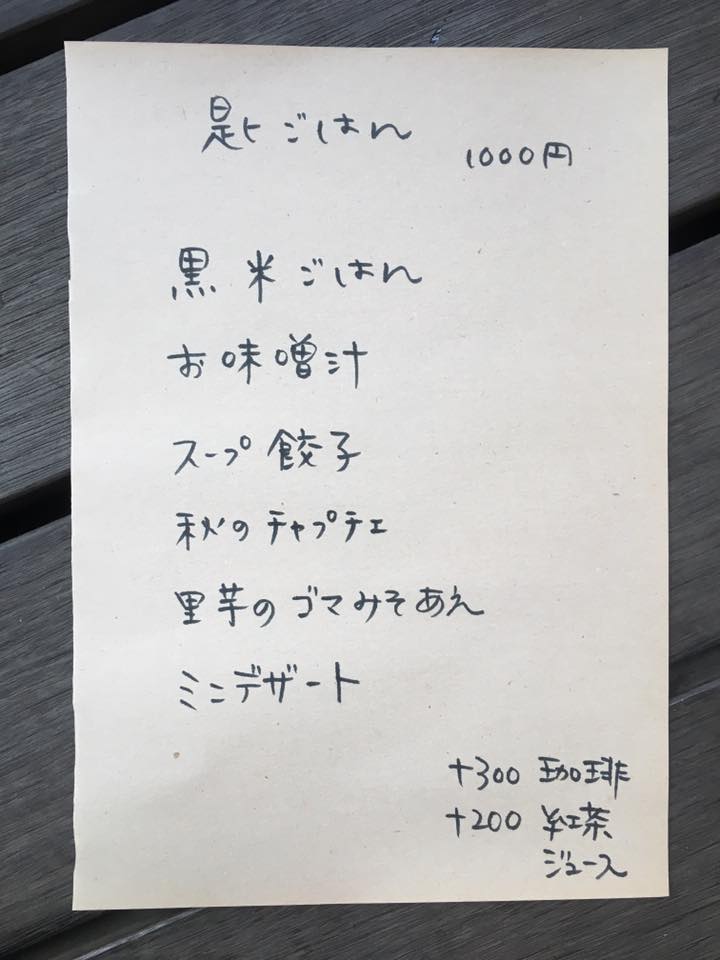 匙ごはん
1000円
黒米ごはん
お味噌汁
スープ餃子
秋のチャプチェ
里芋のゴマみそあえ
ミニデザート
+300 珈琲
+200 紅茶
ジュース